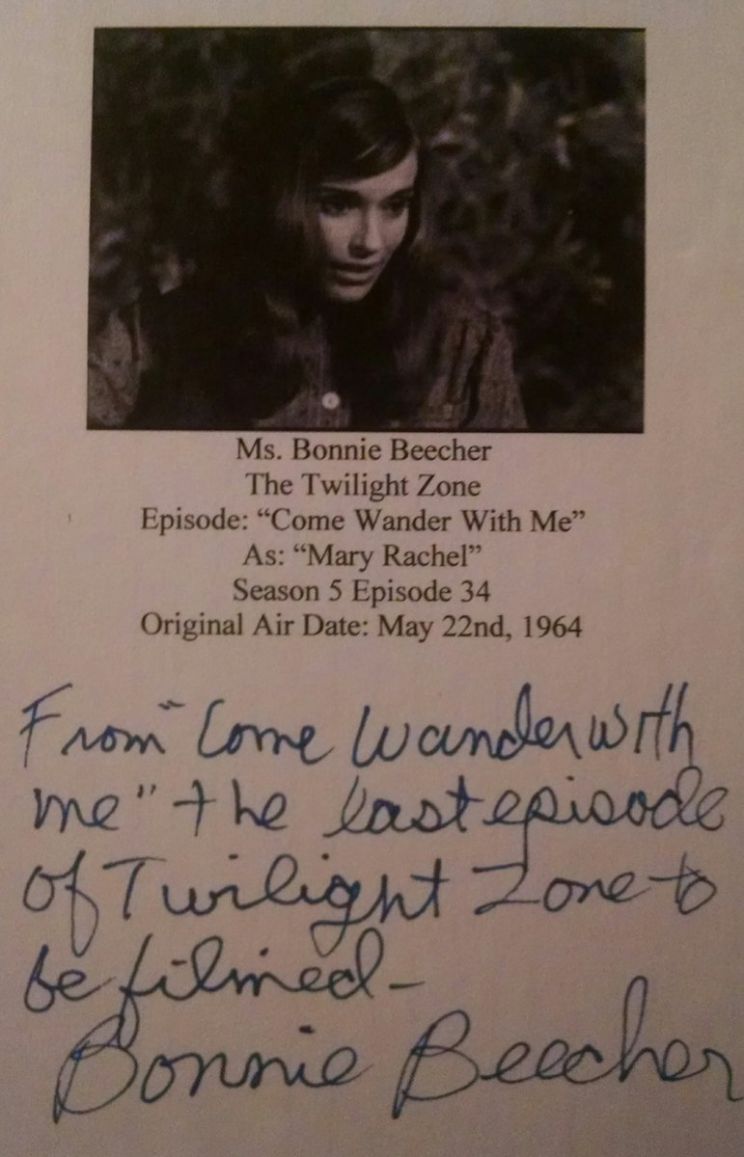 Ms. Bonnie Beecher
The Twilight Zone
Episode: “Come Wander With Me”
As: “Mary Rachel”
Season 5 Episode 34
Original Air Date: May 22nd, 1964
From "Come Wander with
me" the last episode
of Twilight Zone to
be filmed-
Bonnie Beecher